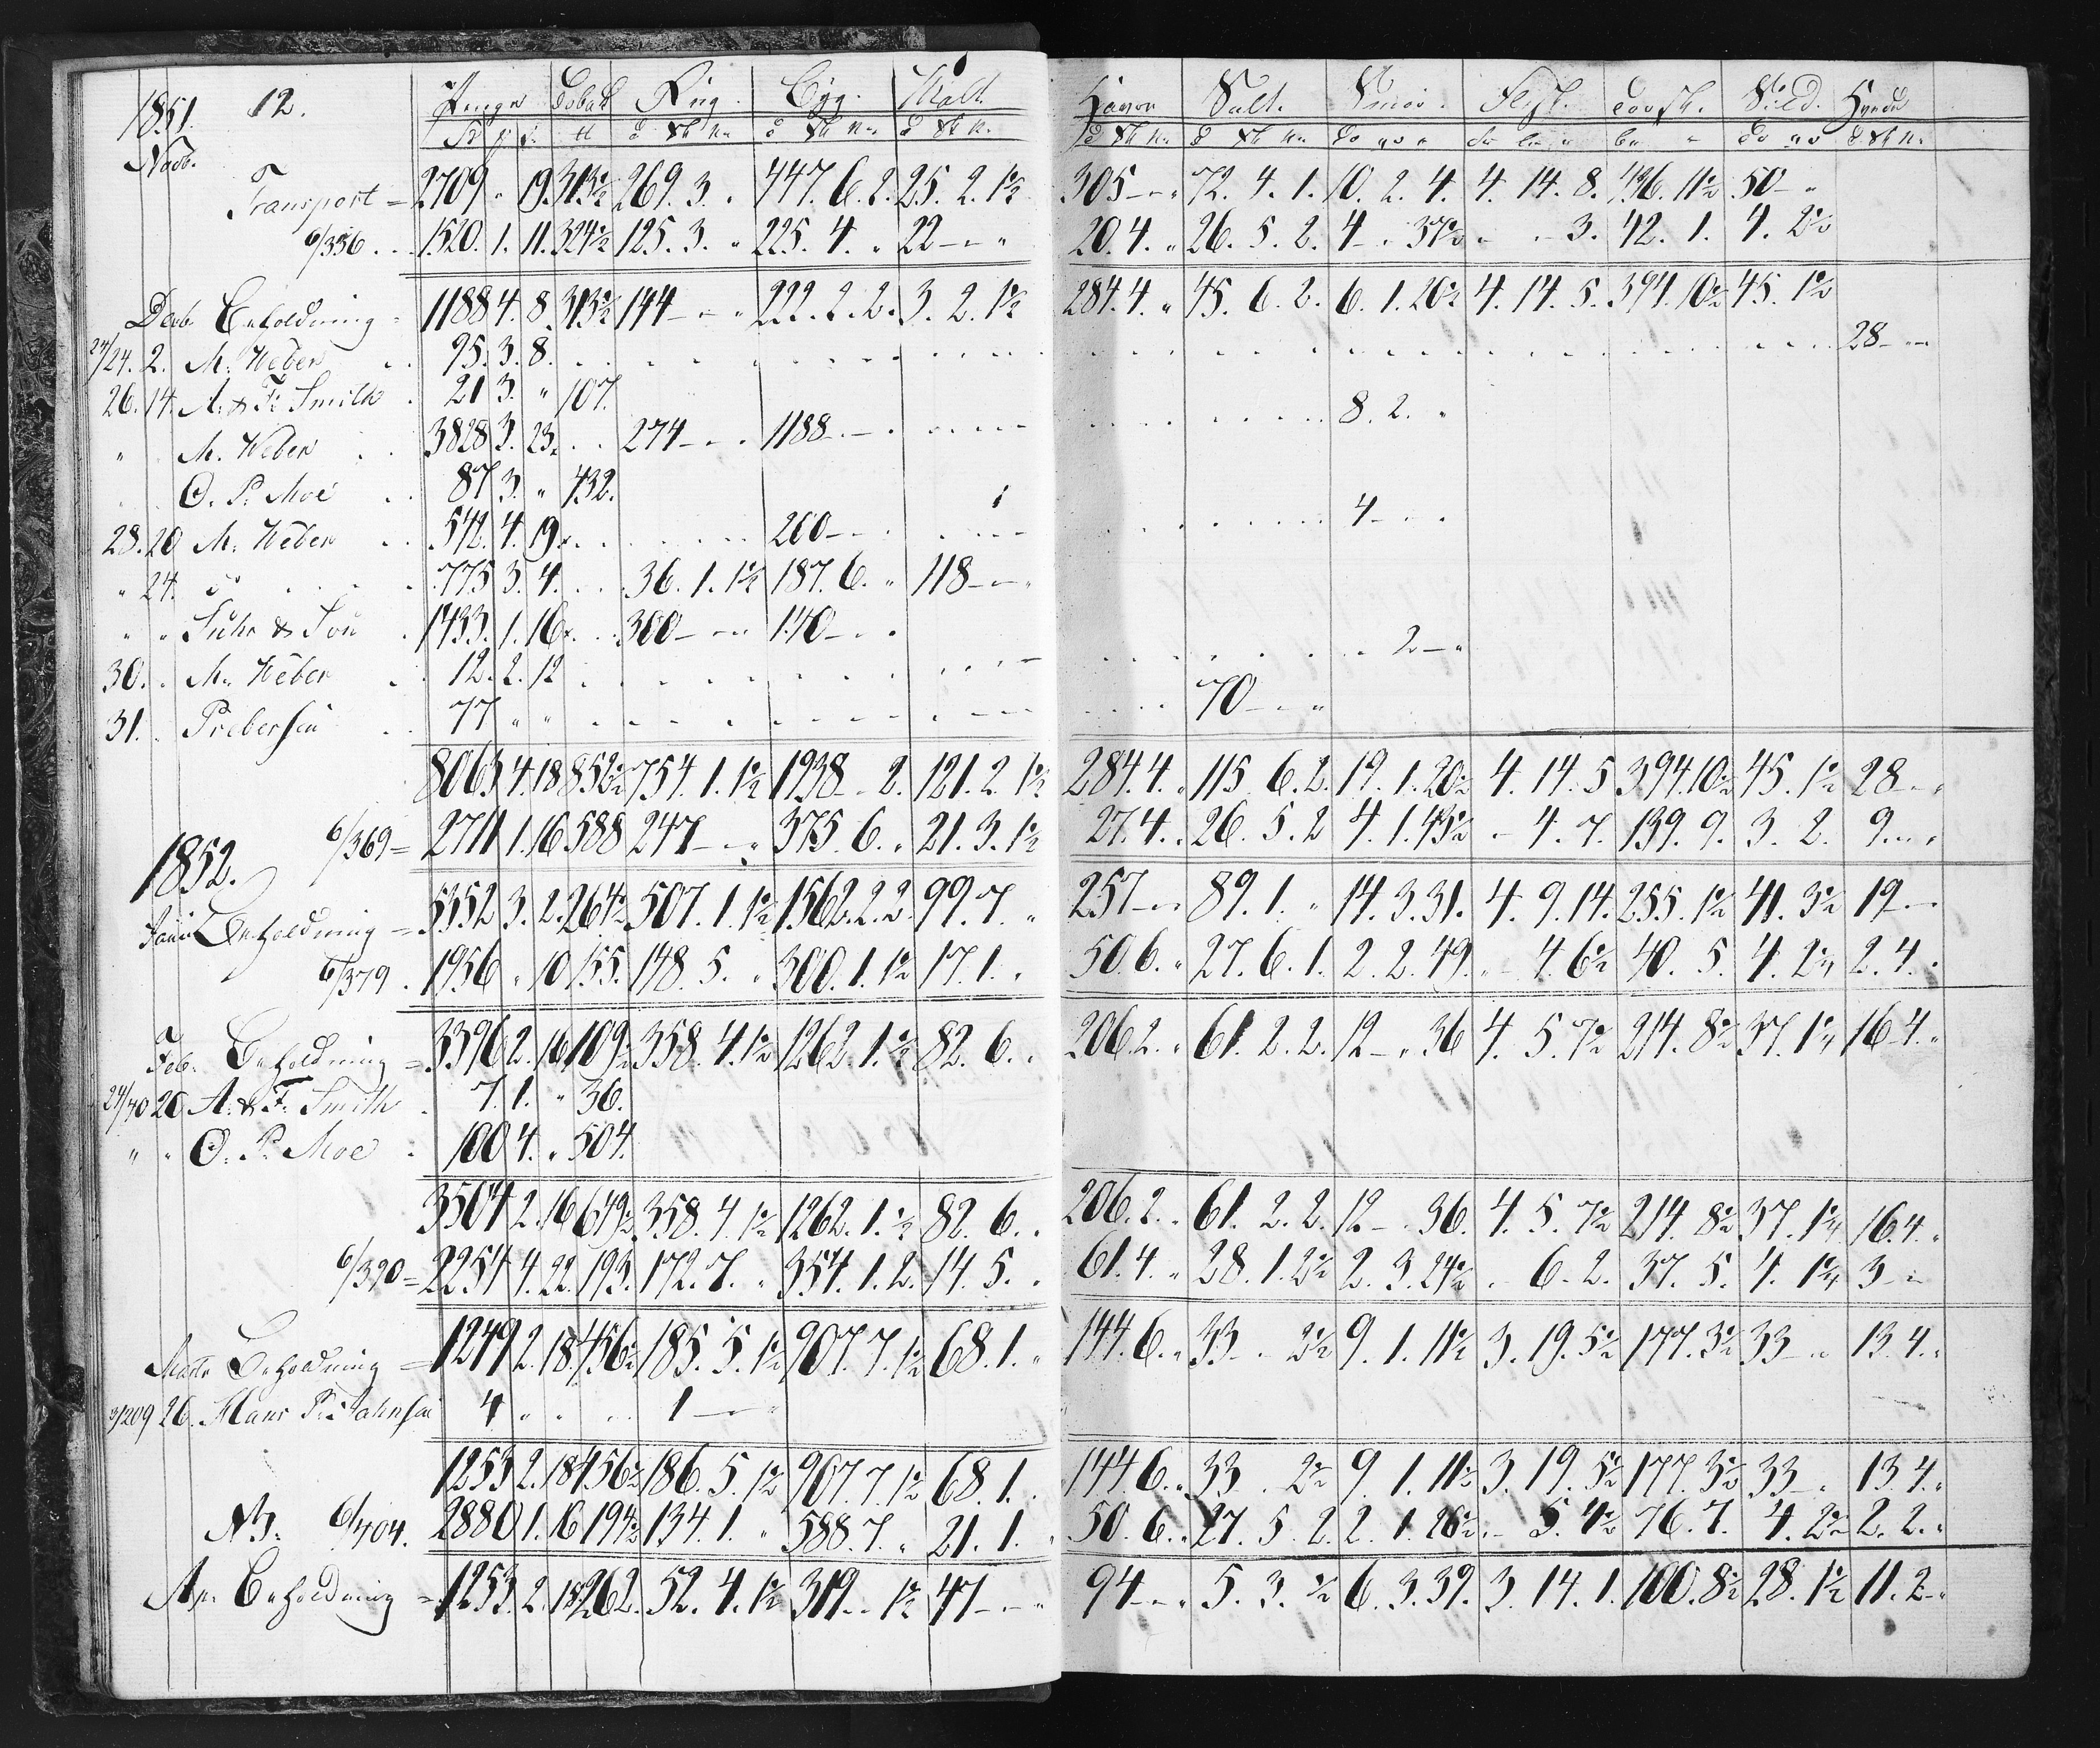 1851. 12. Penge Tobak Rüg. Byg. Malt. Havre Salt. Smør. Flesk. Torsk. Sild.
Novb.
Transport = 2709 „ 19. 313½ 269. 3. „ 447. 6. 2. 25. 2. 1½ 305 – „ 72. 4. 1. 10. 2. 4. 4. 14. 8. 436. 11½ 50 – „
6/356 . . 1520. 1. 11. 324½ 125. 3. „ 225. 4. „ 22 – „ 20. 4. „ 26. 5. 2. 4 – „ 37½ „ – 3. 42. 1. 4. 2½
Decb. Beholdning = 1188 4. 8. 313½ 144 – „ 222. 2. 2. 3. 2. 1½ 284. 4. „ 45. 6. 2. 6. 1. 20½ 4. 14. 5. 394. 10½ 45. 1½
24/24. 2. M. Weber . . 95. 3. 8. 28 – „
26. 14. A. & F. Smith . 21 3. „ 107. 8. 2. „
„ M. Weber . . 3828 3. 23. . . 274 – „ 1188 – „
O. P. Moe . . 87 3. „ 432.
28. 20 M. Weber . . 542. 4. 19. 260 – „ 4 – „
„ 24. do . . 775 3. 4. . . 36. 1. 1½ 187. 6. „ 118 – „
„ „ Suhr & Søn . 1433. 1. 16. . . 300 – „ 140 – „
30. . M. Weber . . 12. 2. 12 2 – „
31. . Prebensen . . 77 „ „ 70 – „
8063 4. 18 852½ 754. 1. 1½ 1938 – 2. 121. 2. 1½ 284. 4. „ 115 6. 2. 19. 1. 20½ 4. 14. 5 394. 10½ 45. 1½ 28 – „
6/369 = 2711 1. 16 588 247 – „ 375. 6. „ 21. 3. 1½ 27. 4. „ 26. 5. 2 4. 1. 43½ – 4. 7. 139. 9. 3. 2. 9 – „
1852.
Janu. Beholdning = 5352 3. 2. 264½ 507. 1. 1½ 1562. 2. 2. 99. 7. „ 257 – „ 89. 1. „ 14. 3. 31. 4. 9. 14. 255. 1½ 41. 3½ 19 –
6/379 . 1956 „ 10 155. 148. 5. „ 300. 1. 1½ 17. 1. „ 50. 6. „ 27. 6. 1. 2. 2. 49. „ – 4. 6½ 40. 5. 4. 2¼ 2. 4. „
Feb. Beholdning = 3396 2. 16 109½ 358. 4. 1½ 1262. 1. ½ 82. 6. „ 206. 2. „ 61. 2. 2. 12 – „ 36 4. 5. 7½ 214. 8½ 37. 1¼ 16. 4. „
24/40 20 A. & F. Smith . 7. 1. „ 36.
„ „ O. P. Moe . 100 4. „ 504.
3504 2. 16 649½ 358. 4. 1½ 1262. 1. ½ 82. 6. „ 206. 2. „ 61. 2. 2. 12 – „ 36. 4. 5. 7½ 214. 8½ 37. 1¼ 16. 4. „
6/390 = 2254 4. 22. 193. 172. 7. „ 354. 1. 2. 14. 5. „ 61. 4. „ 28. 1. 2½ 2. 3. 24½ „ 6. 2. 37. 5. 4. 1¼ 3 – „
Marts Beholdning = 1249 2. 18. 456½ 185. 5. 1½ 907. 7. 1½ 68. 1. „ 144. 6. „ 33 – „ 2½ 9. 1. 11½ 3. 19. 5½ 177. 3½ 33 – „ 13. 4. „
3/209 26. Hans P. Johnsen 4 „ „ 1 – „
1253 2. 18 456½ 186. 5. 1½ 907. 7. 1½ 68. 1. 144. 6. „ 33 – 2½ 9. 1. 11½ 3. 19. 5½ 177. 3½ 33 – „ 13. 4. „
NB. 6/404. 2880 1. 16 194½ 134. 1. „ 588. 7. „ 21. 1. 50. 6. „ 27. 5. 2. 2. 1. 26½ – 5. 4½ 76. 7. 4. 2½ 2. 2. „
Apr. Beholdning = 1253. 2. 18. 262. 52. 4. 1½ 319 – 1½ 47 – „ 94 – „ 5. 3. ½ 6. 3. 39. 3. 14. 1. 100. 8½ 28. 1½ 11. 2 – „